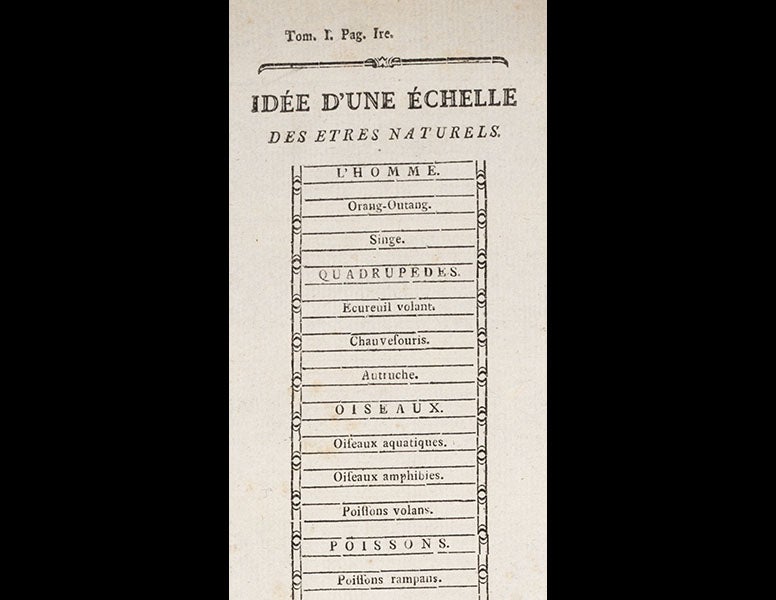 Tom. I. Pag. Ire.
IDÉE D'UNE ÉCHELLE
DES ETRES NATURELS.
L'HOMME.
Orang-Outang.
Singe.
QUADRUPEDES.
Ecureuil volant.
Chauveſouris.
Autruche.
OISEAUX.
Oiſeaux aquatiques.
Oiſeaux amphibies.
Poiſſons volans.
POISSONS.
Poiſſons rampans.